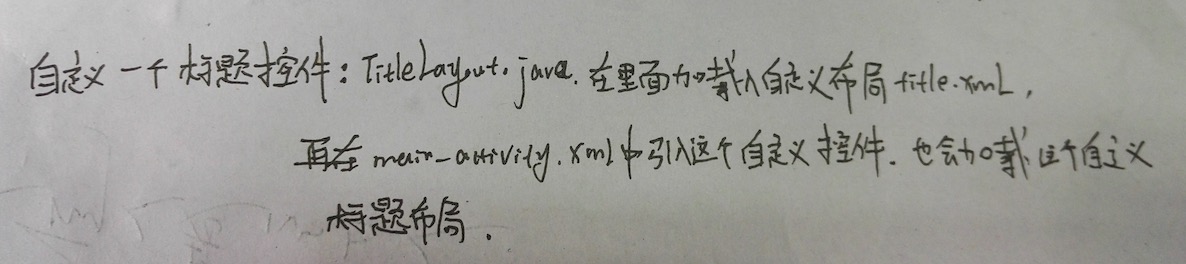 自定义一个标题控件：TitleLayout.java.在里面加载入自定义布局title.xml,
再在main-activity.xml中引入这个自定义控件.也会加载这个自定义
标题布局.